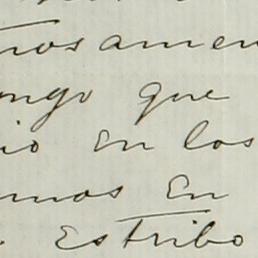 tosamen
ongo que
io en los
mos en
Estribo